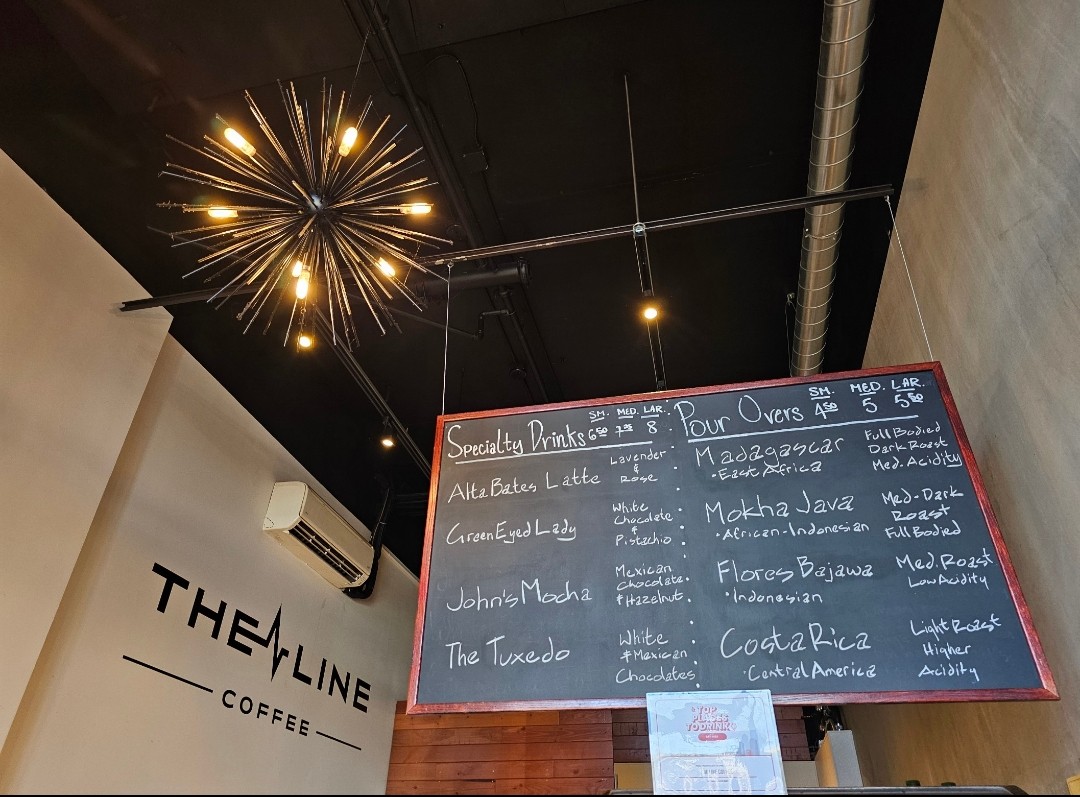 THE LINE
COFFEE
Specialty Drinks
SM. MED. LAR.
6⁵⁰ 7²⁵ 8
Alta Bates Latte
Lavender
&
Rose
Green Eyed Lady
White
Chocolate
&
Pistachio
John's Mocha
Mexican
Chocolate
& Hazelnut
The Tuxedo
White
& Mexican
Chocolates
Pour Overs
SM. MED. LAR.
4⁵⁰ 5 5⁵⁰
Madagascar
• East Africa
Full Bodied
Dark Roast
Med. Acidity
Mokha Java
• African-Indonesian
Med-Dark
Roast
Full Bodied
Flores Bajawa
• Indonesian
Med. Roast
Low Acidity
Costa Rica
• Central America
Light Roast
Higher
Acidity
TOP
PLACES
TO DRINK